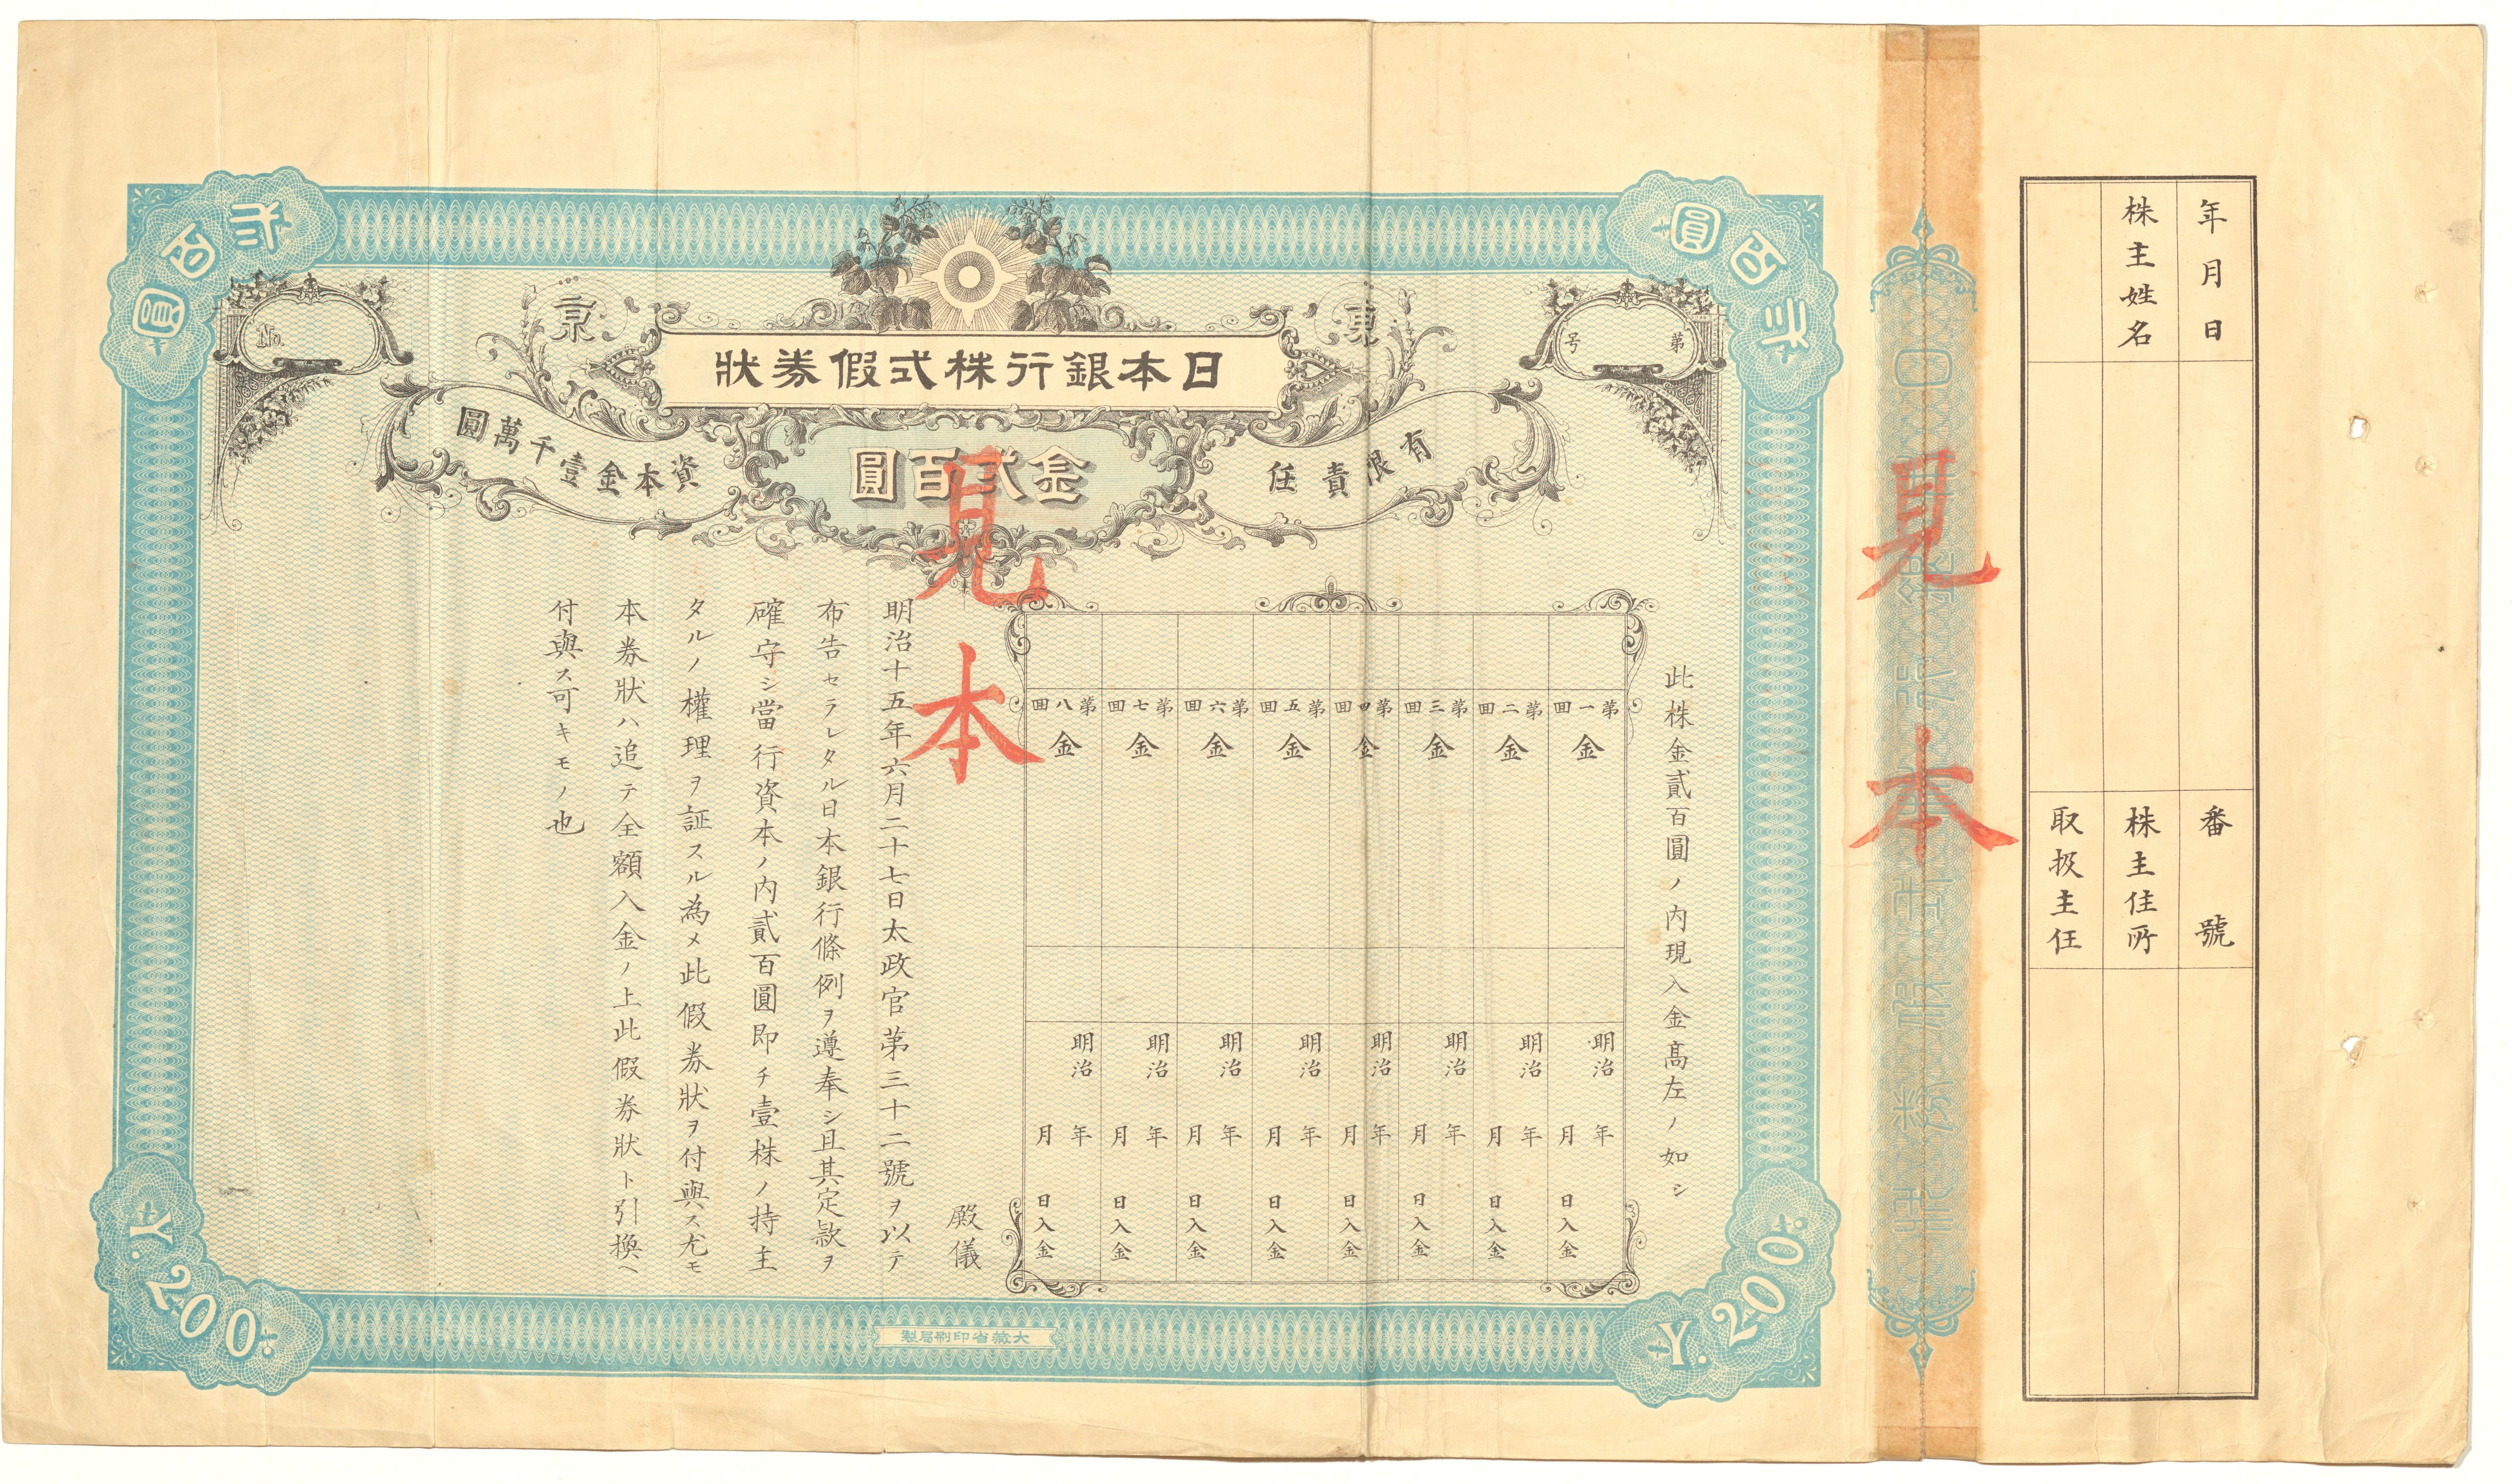 貳百圓
貳百圓
東京
日本銀行株式假券狀
第 号
No.
有限責任
金貳百圓
資本金壹千萬圓
見本
此株金貳百圓ノ内現入金高左ノ如シ
第一回 金 明治 年 月 日入金
第二回 金 明治 年 月 日入金
第三回 金 明治 年 月 日入金
第四回 金 明治 年 月 日入金
第五回 金 明治 年 月 日入金
第六回 金 明治 年 月 日入金
第七回 金 明治 年 月 日入金
第八回 金 明治 年 月 日入金
殿儀
明治十五年六月二十七日太政官第三十二號ヲ以テ
布告セラレタル日本銀行條例ヲ遵奉シ且其定款ヲ
確守シ當行資本ノ内貳百圓即チ壹株ノ持主
タルノ權理ヲ証スル為メ此假券狀ヲ付與ス尤モ
本券狀ハ追テ全額入金ノ上此假券狀ト引換ヘ
付與ス可キモノ也
Y.200
Y.200
大藏省印刷局製
見本
日本銀行株式假券狀
年月日
番號
株主姓名
株主住所
取扱主任